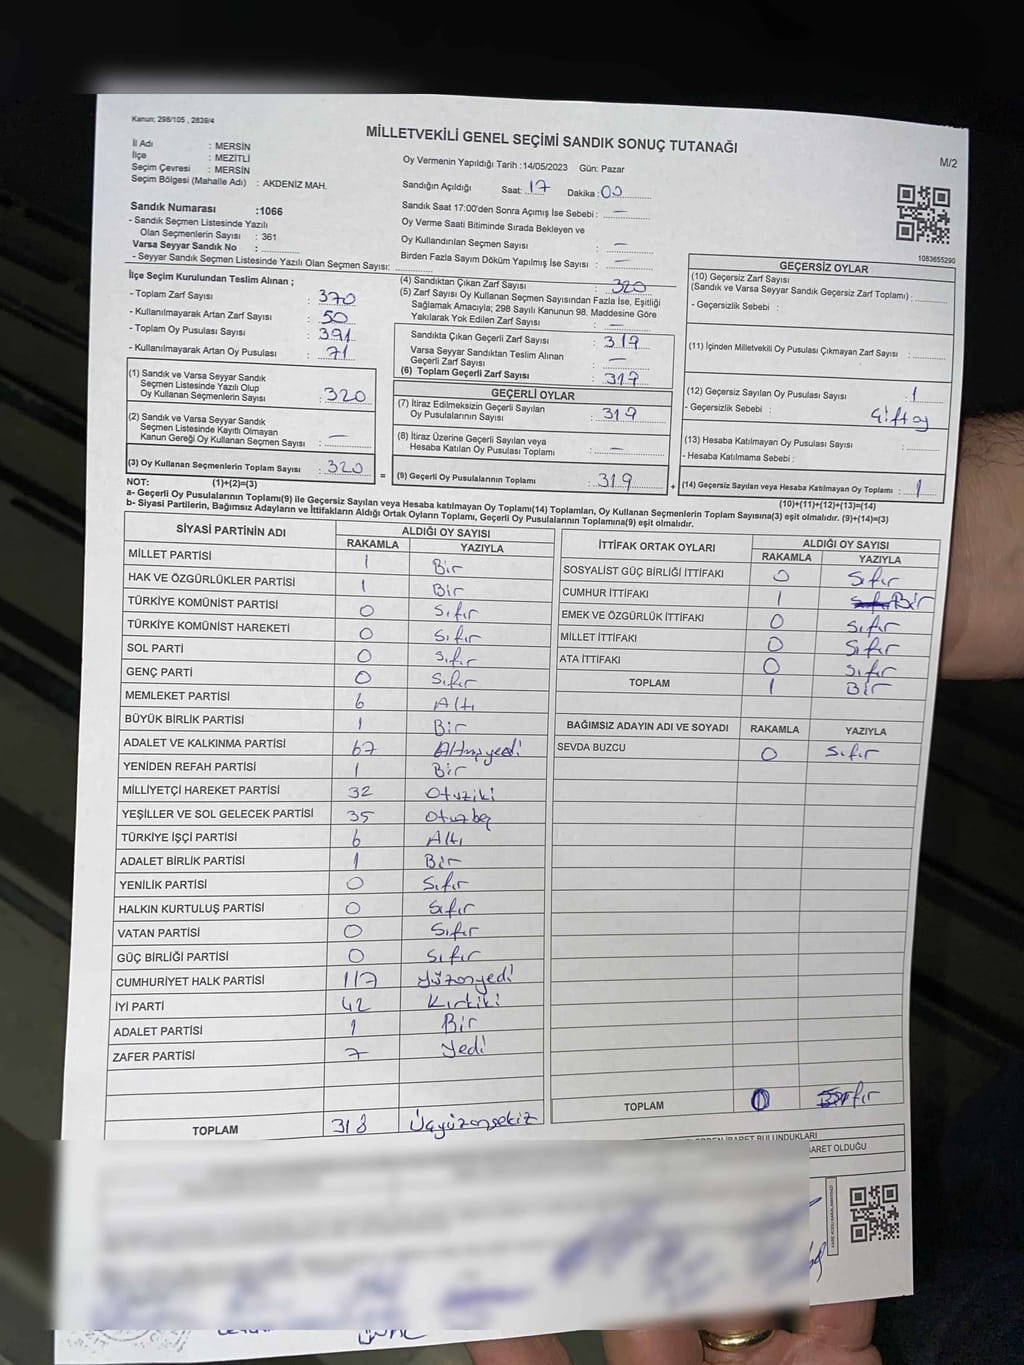 Kanun: 298/105 , 2839/4
MİLLETVEKİLİ GENEL SEÇİMİ SANDIK SONUÇ TUTANAĞI
M/2
İl Adı : MERSİN
İlçe : MEZİTLİ
Seçim Çevresi : MERSİN
Seçim Bölgesi (Mahalle Adı) : AKDENİZ MAH.
Sandık Numarası :1066
- Sandık Seçmen Listesinde Yazılı
Olan Seçmenlerin Sayısı : 361
Varsa Seyyar Sandık No :
- Seyyar Sandık Seçmen Listesinde Yazılı Olan Seçmen Sayısı:
Oy Vermenin Yapıldığı Tarih :14/05/2023 Gün: Pazar
Sandığın Açıldığı Saat: 17 Dakika : 00
Sandık Saat 17:00'den Sonra Açımış İse Sebebi : -
Oy Verme Saati Bitiminde Sırada Bekleyen ve
Oy Kullandırılan Seçmen Sayısı : -
Birden Fazla Sayım Döküm Yapılmış İse Sayısı : -
1083655290
İlçe Seçim Kurulundan Teslim Alınan ;
- Toplam Zarf Sayısı : 370
- Kullanılmayarak Artan Zarf Sayısı : 50
- Toplam Oy Pusulası Sayısı : 391
- Kullanılmayarak Artan Oy Pusulası : 71
(1) Sandık ve Varsa Seyyar Sandık
Seçmen Listesinde Yazılı Olup
Oy Kullanan Seçmenlerin Sayısı : 320
(2) Sandık ve Varsa Seyyar Sandık
Seçmen Listesinde Kayıtlı Olmayan
Kanun Gereği Oy Kullanan Seçmen Sayısı : -
(3) Oy Kullanan Seçmenlerin Toplam Sayısı : 320 =
(4) Sandıktan Çıkan Zarf Sayısı : 320
(5) Zarf Sayısı Oy Kullanan Seçmen Sayısından Fazla İse, Eşitliği
Sağlamak Amacıyla; 298 Sayılı Kanunun 98. Maddesine Göre
Yakılarak Yok Edilen Zarf Sayısı : -
Sandıkta Çıkan Geçerli Zarf Sayısı : 319
Varsa Seyyar Sandıktan Teslim Alınan
Geçerli Zarf Sayısı : -
(6) Toplam Geçerli Zarf Sayısı : 319
GEÇERLİ OYLAR
(7) İtiraz Edilmeksizin Geçerli Sayılan
Oy Pusulalarının Sayısı : 319
(8) İtiraz Üzerine Geçerli Sayılan veya
Hesaba Katılan Oy Pusulası Toplamı : -
(9) Geçerli Oy Pusulalarının Toplamı : 319 +
GEÇERSİZ OYLAR
(10) Geçersiz Zarf Sayısı
(Sandık ve Varsa Seyyar Sandık Geçersiz Zarf Toplamı) :
- Geçersizlik Sebebi :
(11) İçinden Milletvekili Oy Pusulası Çıkmayan Zarf Sayısı :
(12) Geçersiz Sayılan Oy Pusulası Sayısı : 1
- Geçersizlik Sebebi : Çift oy
(13) Hesaba Katılmayan Oy Pusulası Sayısı :
- Hesaba Katılmama Sebebi :
(14) Geçersiz Sayılan veya Hesaba Katılmayan Oy Toplamı : 1
NOT: (1)+(2)=(3)
(10)+(11)+(12)+(13)=(14)
a- Geçerli Oy Pusulalarının Toplamı(9) ile Geçersiz Sayılan veya Hesaba katılmayan Oy Toplamı(14) Toplamları, Oy Kullanan Seçmenlerin Toplam Sayısına(3) eşit olmalıdır. (9)+(14)=(3)
b- Siyasi Partilerin, Bağımsız Adayların ve İttifakların Aldığı Ortak Oyların Toplamı, Geçerli Oy Pusulalarının Toplamına(9) eşit olmalıdır.
SİYASİ PARTİNİN ADI ALDIĞI OY SAYISI
RAKAMLA YAZIYLA
MİLLET PARTİSİ 1 Bir
HAK VE ÖZGÜRLÜKLER PARTİSİ 1 Bir
TÜRKİYE KOMÜNİST PARTİSİ 0 Sıfır
TÜRKİYE KOMÜNİST HAREKETİ 0 Sıfır
SOL PARTİ 0 Sıfır
GENÇ PARTİ 0 Sıfır
MEMLEKET PARTİSİ 6 Altı
BÜYÜK BİRLİK PARTİSİ 1 Bir
ADALET VE KALKINMA PARTİSİ 67 Altmışyedi
YENİDEN REFAH PARTİSİ 1 Bir
MİLLİYETÇİ HAREKET PARTİSİ 32 Otuziki
YEŞİLLER VE SOL GELECEK PARTİSİ 35 Otuzbeş
TÜRKİYE İŞÇİ PARTİSİ 6 Altı
ADALET BİRLİK PARTİSİ 1 Bir
YENİLİK PARTİSİ 0 Sıfır
HALKIN KURTULUŞ PARTİSİ 0 Sıfır
VATAN PARTİSİ 0 Sıfır
GÜÇ BİRLİĞİ PARTİSİ 0 Sıfır
CUMHURİYET HALK PARTİSİ 117 Yüzonyedi
İYİ PARTİ 42 Kırkiki
ADALET PARTİSİ 1 Bir
ZAFER PARTİSİ 7 Yedi
TOPLAM 318 Üçyüzonsekiz
İTTİFAK ORTAK OYLARI ALDIĞI OY SAYISI
RAKAMLA YAZIYLA
SOSYALİST GÜÇ BİRLİĞİ İTTİFAKI 0 Sıfır
CUMHUR İTTİFAKI 1 Bir
EMEK VE ÖZGÜRLÜK İTTİFAKI 0 Sıfır
MİLLET İTTİFAKI 0 Sıfır
ATA İTTİFAKI 0 Sıfır
TOPLAM 1 Bir
BAĞIMSIZ ADAYIN ADI VE SOYADI RAKAMLA YAZIYLA
SEVDA BUZCU 0 Sıfır
TOPLAM 0
BULUNDUKLARI
OLDUĞU